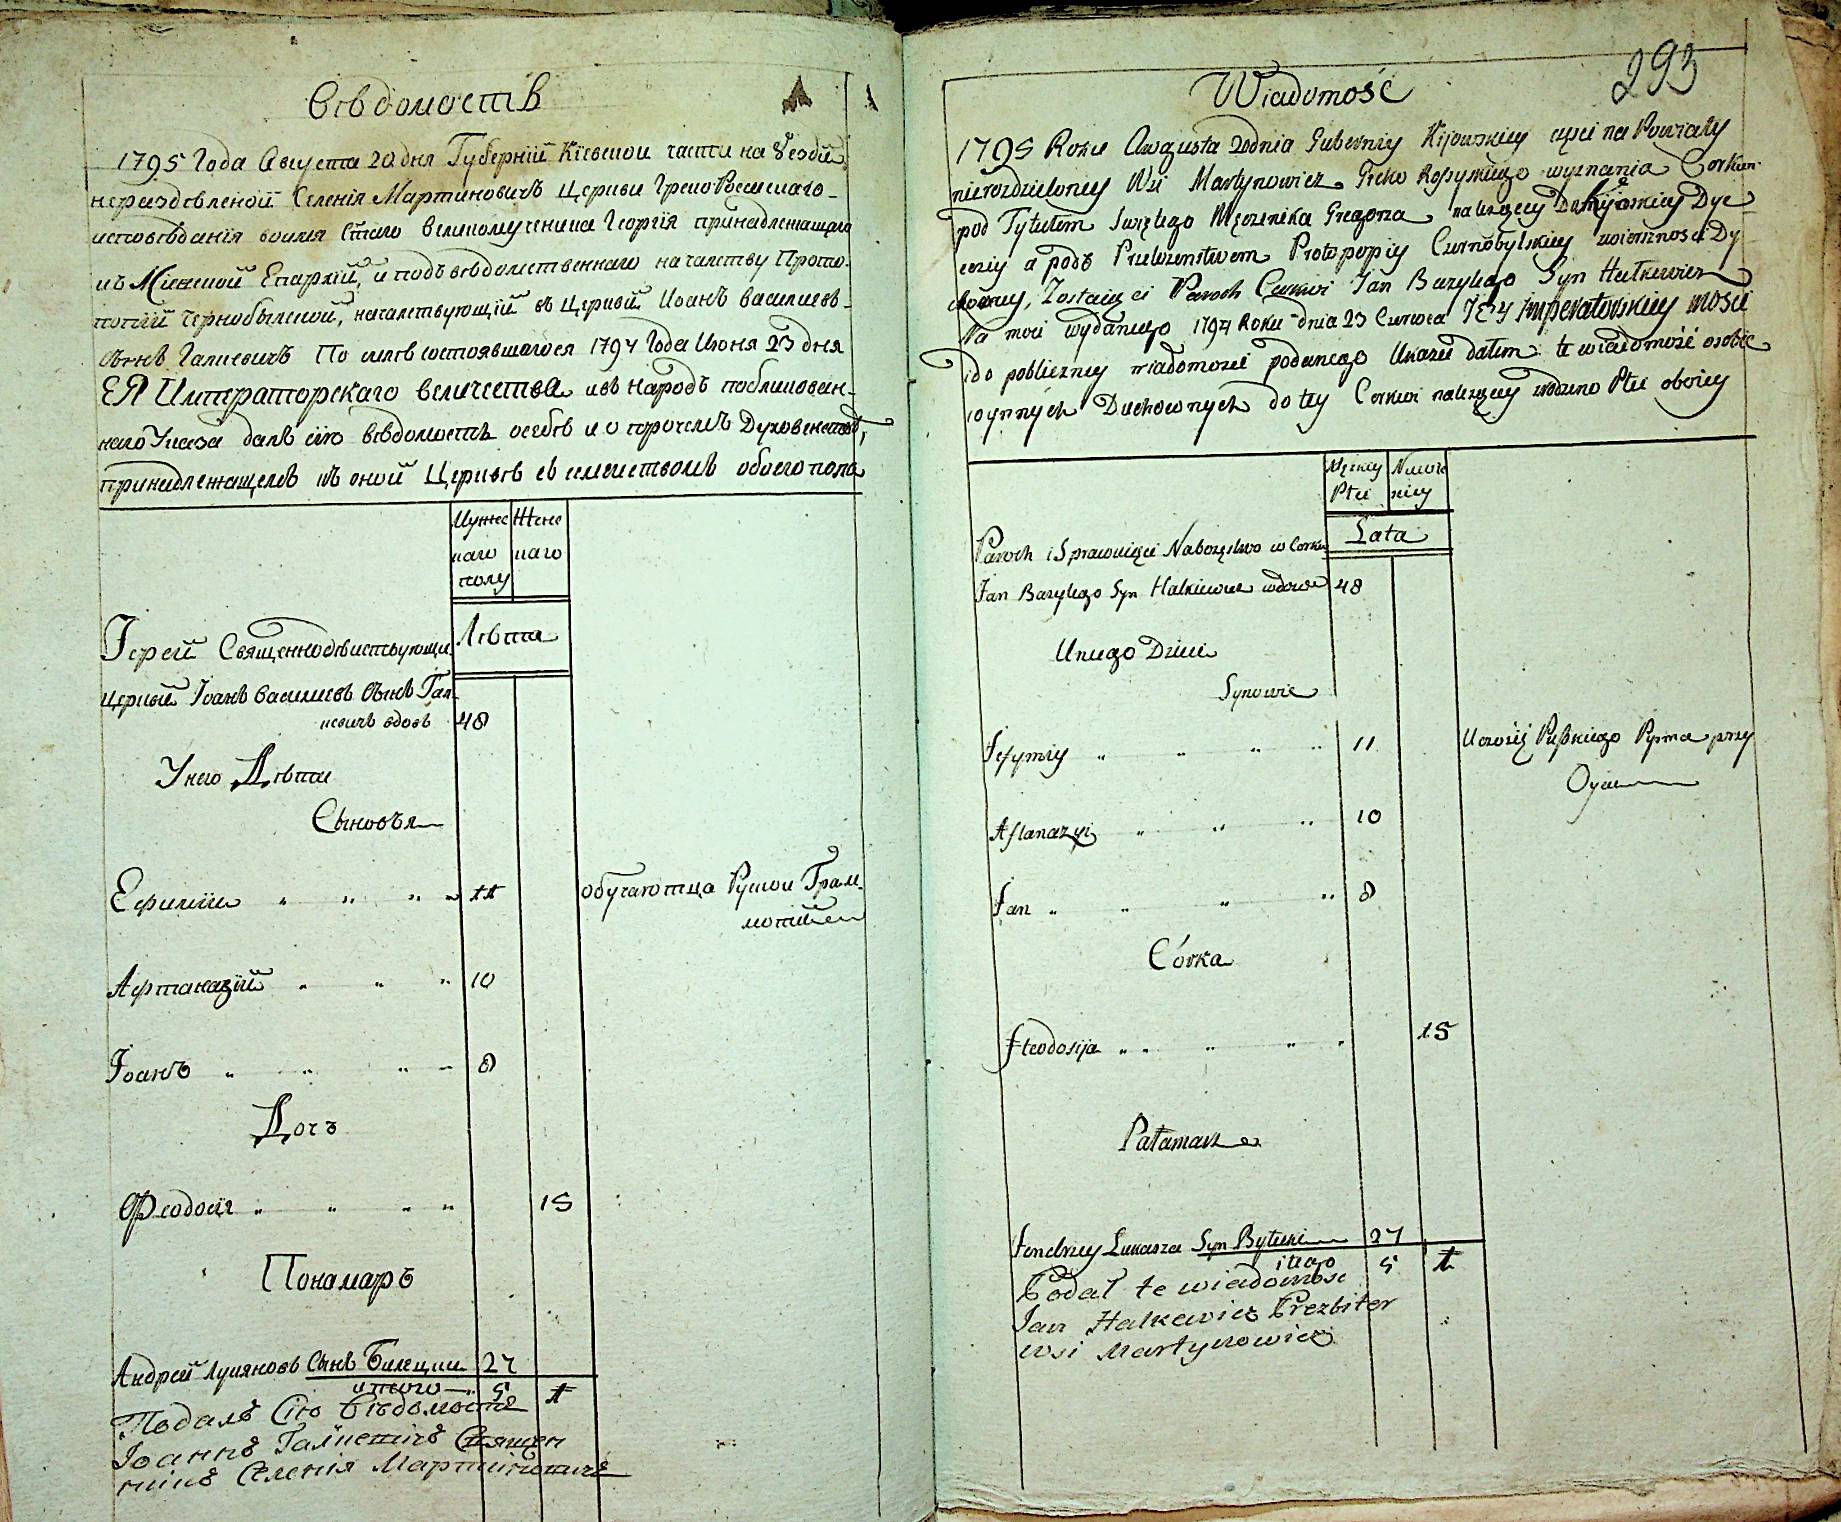 Вѣдомость
1795 Года Августа 20 дня Губернїи Кїевскои части на Уезди
нераздѣленой Селенїя Мартиновичъ Церкви Греко Россискаго
исповѣданїя во имя Стаго великомученика Георгїя принадлежащаго
къ Кіевской Епархїи, и подъ вѣдомственнаго началству Прото-
попїи Чернобылской, началствующїй въ Церквѣ Иоанъ василиевъ
Сынъ Галкевичъ По силѣ состоявшагося 1794 Года Июня 23 дня
ЕЯ Императорскаго величества и въ Народъ публикован-
наго Указа далъ сїю вѣдомость о себѣ и о прочемъ Духовенствѣ,
принадлежащемъ къ оной Церквѣ съ семействомъ обоего пола
Мужес Женс
каго каго
полу
Лѣта
Іерей Священнодѣйствующи
Церквй Іоанъ василиевъ Сынъ Гал-
кевичъ вдовъ 48
У него Дѣти
Сыновъя
Ефимїи 11 обучаютца Руской Грам-
мотїи
Афтаназїй 10
Іоанъ 8
Дочъ
Феодосїя 15
Пономаръ
Андрей Лукяновъ Сынъ Билецки 27
итого 5 1
Подалъ Сїю Вѣдомость
Іоаннъ Галкевичъ Священ
никъ Селенїя Мартиновичъ
293
Wiadomość
1795 Roku Augusta 20 dnia Gubernij Kijowskiey częsci na Powiaty
nierozdzieloney Wsi Martynowicz Greko Rossyiskiego wyznania Corkwi
pod Tytułem Swiętego Męczenika Gregorza należącey Do Kijowskiey Dye
cezij a podъ Przełozenstwem Protopopij Czernobylskiey zwierznosci Dy
chowney, Zostaiący Paroch Cerkwi Jan Bazylego Syn Halkiewicz
Na moci wydanego 1794 Roku dnia 23 Czerwca JEy Imperatorskiey mości
i do publiczney wiadomości podanego Ukazu dałem te wiadomość o sobie
i o ynnych Duchownych do tey Corkwi należącey rodzino Płci oboiey
Męzkiy Niewie
Płci sciey
Lata
Paroch i Sprawuiący Nabozęstwo w Corkw
Jan Bazylego Syn Halkiewicz wdowec 48
U niego Dzieci
Synowie
Jefymiy 11 Uczą się Russkiego Pysma przy
Oycu
Aftanazyi 10
Jan 8
Córka
Fteodosija 15
Pałamarz
Jendrzey Lukasza Syn Bylecki 27
i tego 5 1
Podał te wiadomosc
Jan Halkewicz Prezbiter
wsi Martynowicz